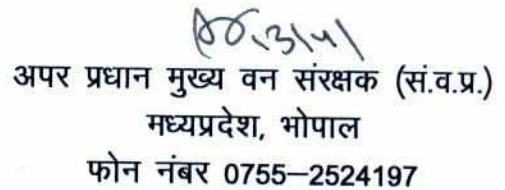 अपर प्रधान मुख्य वन संरक्षक (सं.व.प्र.)
मध्यप्रदेश, भोपाल
फोन नंबर 0755–2524197